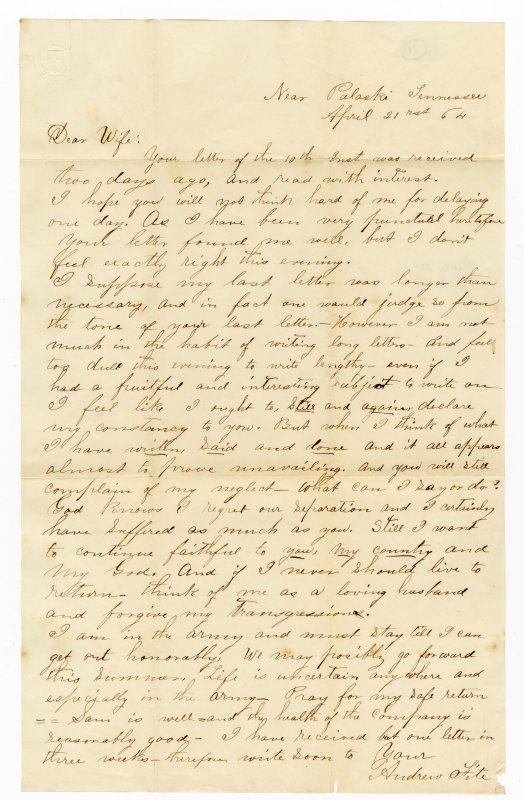 Near Palaski Tennessee
April 21rst 64
Dear Wife:
Your letter of the 10th Inst was received
two days ago, and read with interest.
I hope you will not think hard of me for delaying
one day. As I have been very punctual heretofore
Your letter found me well, but I don't
feel exactly right this evening.
I Suppose my last letter was longer than
necessary, and in fact one would judge so from
the tone of your last letter. - However I am not
much in the habit of writing long letters - And feel
too dull this evening to write lengthy - even if I
had a fruitful and interesting subject to write on
I feel like I ought to, Still and again, declare
my constancy to you. But when I think of what
I have writen, Said and done and it all appears
almost to prove unavailing. And you will Still
complain of my neglect - What can I say or do?
God Knows I regret our Separation and I certainly
have Suffered as much as you. Still I want
to continue faithful to you, my country and
My God. And if I never Should live to
return - think of me as a loving husband
and forgive my transgressions.
I am in the army and must Stay till I can
get out honorably. We may posibly go forward
this Summer. Life is uncertain anywhere and
especially in the army - Pray for my safe return
= = Sam is well = and the health of the company is
reasonably good - I have received but one letter in
three weeks - therefore write Soon to Your
Andrew Fite